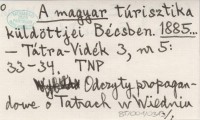 A magyar túrisztika
küldöttjei Bécsben. 1885...
— Tátra-Vidék 3, nr 5:
33-34. TNP
Odczyty propagan-
dowe o Tatrach w Wiedniu